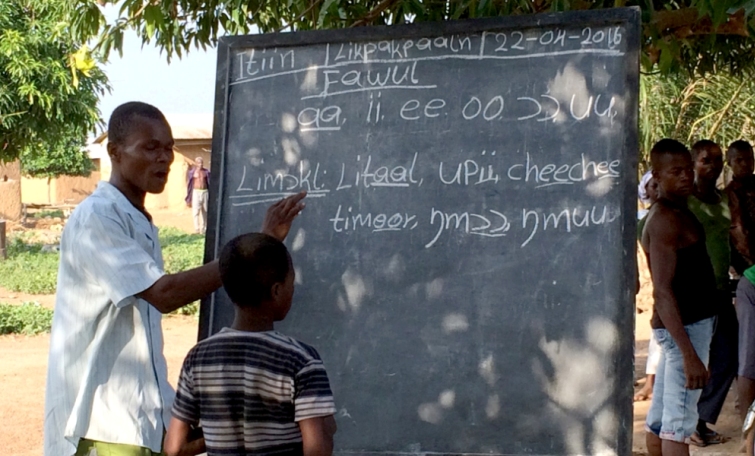 Itiin | Likpakpaaln | 22-04-2016
Fawul
aa, ii, ee. oo ɔɔ, uu,
Limɔkl: Litaal, upii, cheechee
timoor, ŋmɔɔ, ŋmuu